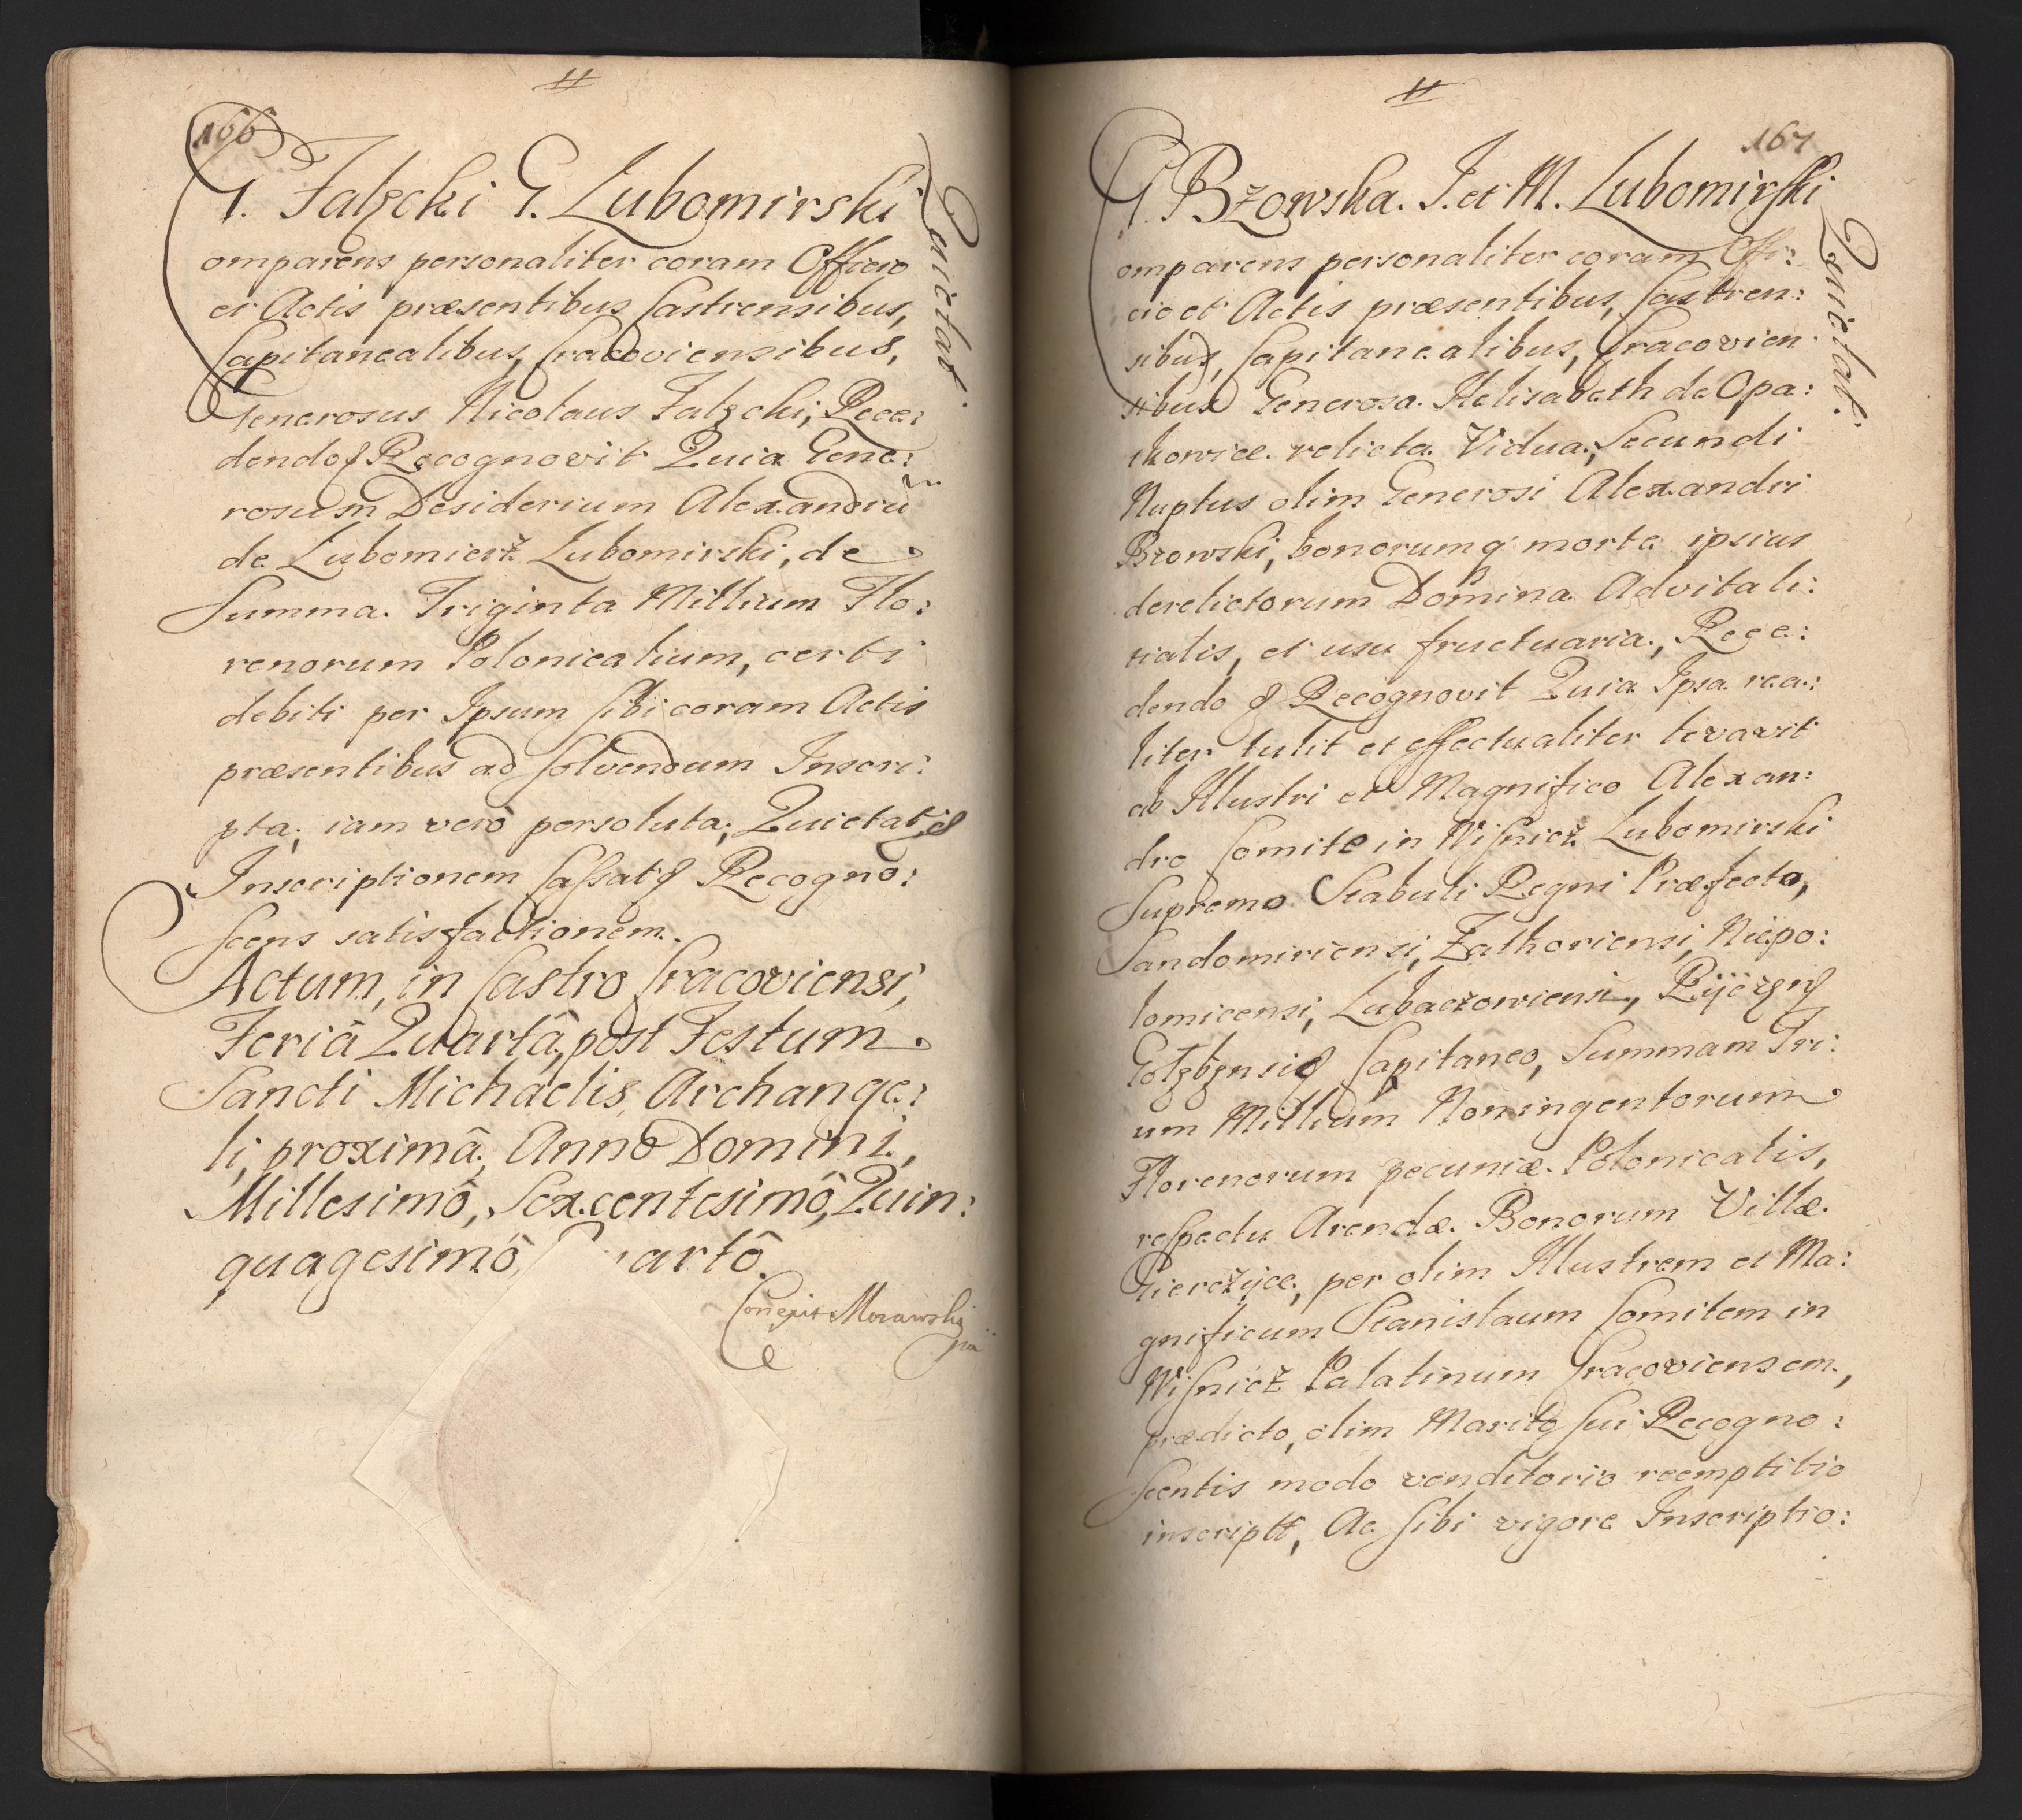 166
G. Falęcki G. Lubomirski
Quietat.
Comparens personaliter coram Officio
et Actis præsentibus Castrensibus,
Capitanealibus, Cracoviensibus,
Generosus Nicolaus Falęcki, Rece:
dendoq Recognovit Quia Gene:
rosum Desiderium Alexandrū
de Lubomierż Lubomirski, de
Summa Triginta Millium Flo:
renorum Polonicalium, certi
debiti per Ipsum sibi coram Actis
præsentibus ad solvendum Inscri:
pta, iam verò persoluta, Quietat, et
Inscriptionem Caſsat q Recogno:
scens satisfactionem.
Actum, in Castro Cracoviensi,
Feriâ Quartâ, post Festum
Sancti Michaelis Archange:
li, proximâ, Anno Domini,
Millesimô, Sexcentesimô, Quin:
quagesimô, artô.
Correxit Morawski
167
G. Bżowska. I. et M. Lubomirſki
Quietat.
Comparens personaliter coram Offi:
cio et Actis præsentibus, Castren:
sibus, Capitanealibus, Cracovien
sibus Generosa Helisabeth de Opa:
tkowice relicta Vidua, Secundi
Nuptus olim Generosi Alexandri
Bzowski, bonorumq morte ipsius
derelictorum Domina Advitali:
tialis, et usu fructuaria, Rece:
dendo q Recognovit Quia Ipsa rea:
liter tulit et effectualiter levavit
ab Illustri et Magnifico Alexan:
dro Comite in Wiſnicz Lubomirski
Supremo Stabuli Regni Præfecto,
Sandomiriensi, Zathoriensi, Niepo:
lomicensi, Lubaczowiensi, Ryczyw
Gołębęnsiq Capitaneo, Summam Tri:
um Millium Noningentorum
Florenorum pecuniæ Polonicalis,
respectu Arendæ Bonorum Villæ
Gierczyce, per olim Illustrem et Ma:
gnificum Stanislaum Comitem in
Wiſnicż Palatinum Cracoviensem,
prædicto, olim Marito sui Recogno:
scentis modo venditorio reemptitio
inscriptt, Ac sibi vigore Inscriptio: